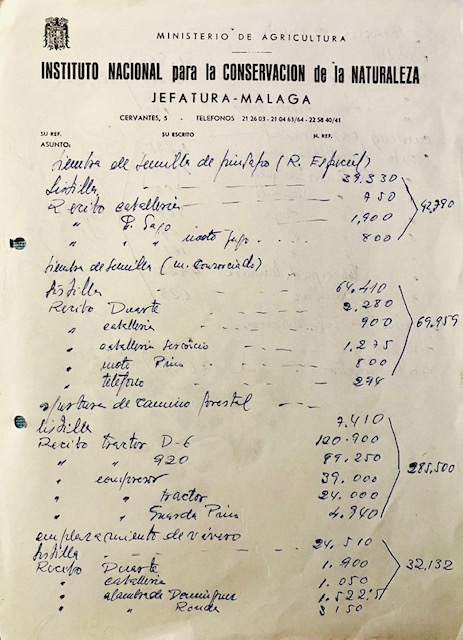 MINISTERIO DE AGRICULTURA
INSTITUTO NACIONAL para la CONSERVACION de la NATURALEZA
JEFATURA-MALAGA
CERVANTES, 5 - TELEFONOS 21 26 03 - 21 04 63/64 - 22 58 40/41
SU REF. SU ESCRITO N. REF.
ASUNTO:
siembra de semilla de pinsapo (R. Especial)
Listilla 39.330
Recibo caballería 750
" P. Gago 1,900 42,790
" " moto 800
siembra de semilla (m. Consorciado)
Listilla 64.410
Recibo Duarte 2.280
" caballeria 900 69,959
" caballeria servicio 1.275
" moto Pino 800
" teléfono 294
apertura de camino forestal
Listilla 7.410
Recibo tractor D-6 120.900
" " 920 89.250
" compresor 39.000 285,500
" " tractor 24.000
" " Guarda Pino 4.940
emplazamiento de vivero
Listilla 24.510
Recibo Duarte 1.900
" caballeria 1.050 32,132
" alambrada Dominguez 1.522,5
" " Ronda 3150